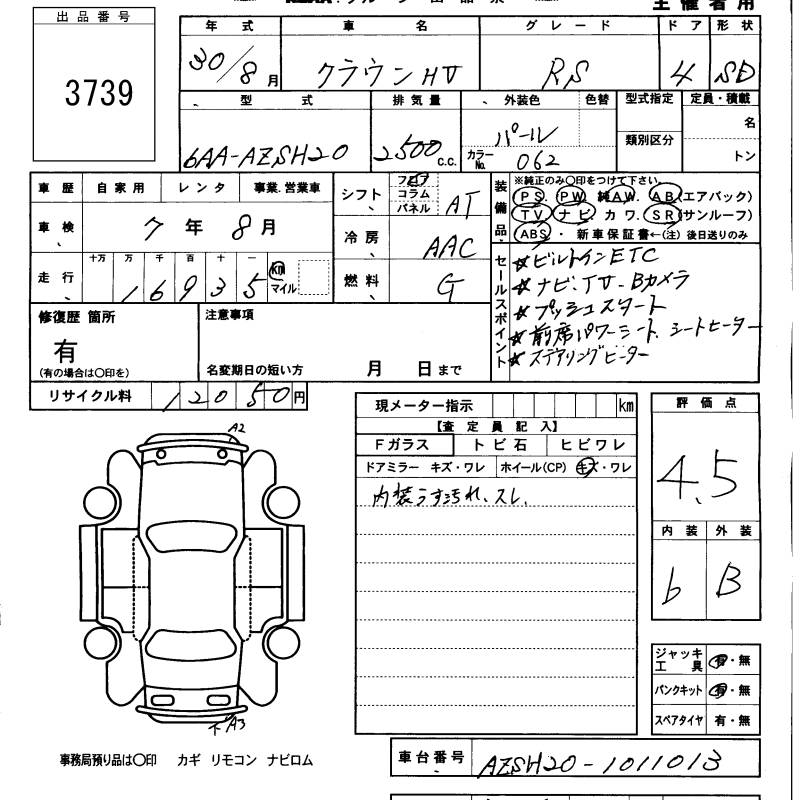 出品番号
3739
年式 車名 グレード ドア 形状
30/8月 クラウンHV RS 4 SD
型式 排気量 外装色 色替 型式指定 定員・積載
6AA-AZSH20 2500c.c. パール 名
カラーNo. 062 類別区分 トン
車歴 自家用 レンタ 事業.営業車
車検 7年 8月
走行 十万 万 千 百 十 一
16935 km マイル
シフト フロア コラム パネル AT
冷房 AAC
燃料 G
装備品 ※純正のみ○印をつけて下さい。
PS. PW 純AW. AB(エアバック)
TV ナビ. カワ. SR(サンルーフ)
ABS ・ 新車保証書←(注) 後日送りのみ
セールスポイント
☆ビルトインETC
☆ナビ.TV.Bカメラ
☆プッシュスタート
☆前席パワーシート.シートヒーター
☆ステアリングヒーター
修復歴 箇所
有
(有の場合は○印を)
注意事項
名変期日の短い方 月 日まで
リサイクル料 12050円
現メーター指示 km
【査定員記入】
Fガラス トビ石 ヒビワレ
ドアミラー キズ・ワレ ホイール(CP) キズ・ワレ
内装うす汚れ、スレ、
評価点
4.5
内装 外装
b B
ジャッキ工具 有・無
パンクキット 有・無
スペアタイヤ 有・無
A2
下A3
事務局預り品は○印 カギ リモコン ナビロム
車台番号 AZSH20-1011013